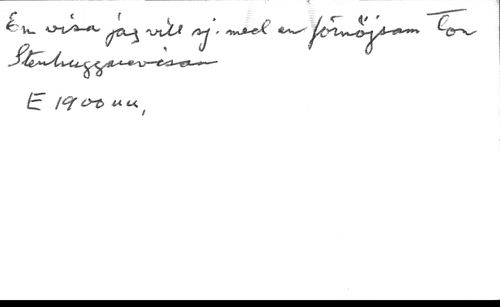 En visa jag vill sj. med en förnöjsam Ton
Stenhuggarevisan
E 1900 uu,